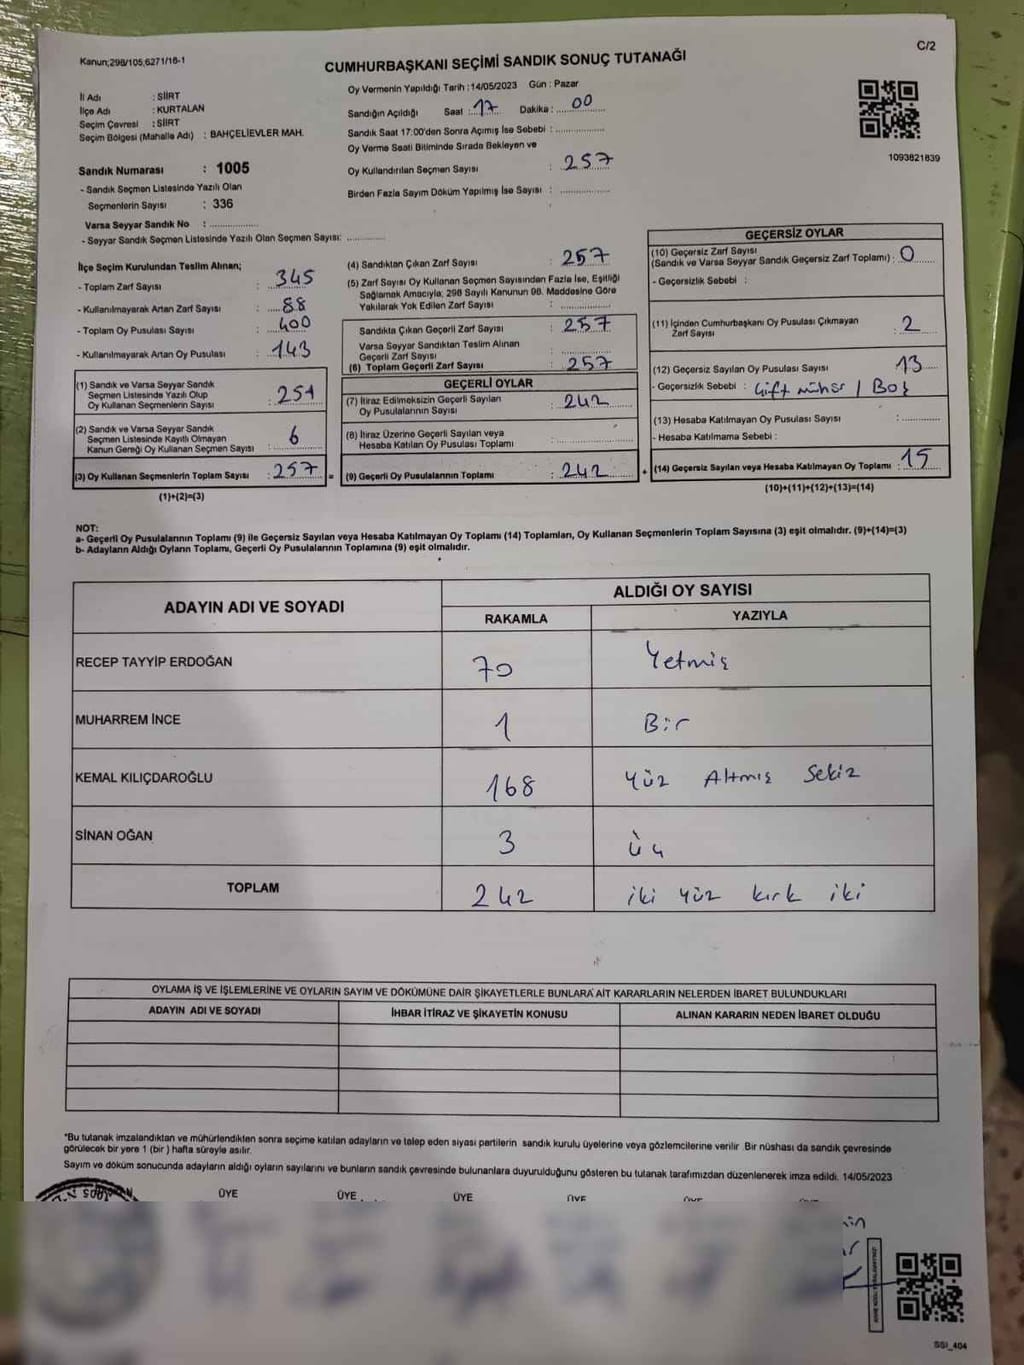 Kanun;298/105,6271/16-1
C/2
CUMHURBAŞKANI SEÇİMİ SANDIK SONUÇ TUTANAĞI
İl Adı : SİİRT
İlçe Adı : KURTALAN
Seçim Çevresi : SİİRT
Seçim Bölgesi (Mahalle Adı) : BAHÇELİEVLER MAH.
Sandık Numarası : 1005
- Sandık Seçmen Listesinde Yazılı Olan
Seçmenlerin Sayısı : 336
Varsa Seyyar Sandık No : ..............
- Seyyar Sandık Seçmen Listesinde Yazılı Olan Seçmen Sayısı: ...........
Oy Vermenin Yapıldığı Tarih :14/05/2023 Gün : Pazar
Sandığın Açıldığı Saat : 17 Dakika : 00
Sandık Saat 17:00'den Sonra Açımış İse Sebebi : ..............
Oy Verme Saati Bitiminde Sırada Bekleyen ve
Oy Kullandırılan Seçmen Sayısı : 257
Birden Fazla Sayım Döküm Yapılmış İse Sayısı : ..............
1093821839
İlçe Seçim Kurulundan Teslim Alınan;
- Toplam Zarf Sayısı : 345
- Kullanılmayarak Artan Zarf Sayısı : 88
- Toplam Oy Pusulası Sayısı : 400
- Kullanılmayarak Artan Oy Pusulası : 143
(1) Sandık ve Varsa Seyyar Sandık
Seçmen Listesinde Yazılı Olup
Oy Kullanan Seçmenlerin Sayısı : 251
(2) Sandık ve Varsa Seyyar Sandık
Seçmen Listesinde Kayıtlı Olmayan
Kanun Gereği Oy Kullanan Seçmen Sayısı : 6
(3) Oy Kullanan Seçmenlerin Toplam Sayısı : 257
(1)+(2)=(3)
(4) Sandıktan Çıkan Zarf Sayısı : 257
(5) Zarf Sayısı Oy Kullanan Seçmen Sayısından Fazla İse, Eşitliği
Sağlamak Amacıyla; 298 Sayılı Kanunun 98. Maddesine Göre
Yakılarak Yok Edilen Zarf Sayısı : ..............
Sandıkta Çıkan Geçerli Zarf Sayısı : 257
Varsa Seyyar Sandıktan Teslim Alınan
Geçerli Zarf Sayısı : ..............
(6) Toplam Geçerli Zarf Sayısı : 257
GEÇERLİ OYLAR
(7) İtiraz Edilmeksizin Geçerli Sayılan
Oy Pusulalarının Sayısı : 242
(8) İtiraz Üzerine Geçerli Sayılan veya
Hesaba Katılan Oy Pusulası Toplamı : ..............
(9) Geçerli Oy Pusulalarının Toplamı : 242
GEÇERSİZ OYLAR
(10) Geçersiz Zarf Sayısı
(Sandık ve Varsa Seyyar Sandık Geçersiz Zarf Toplamı) : 0
- Geçersizlik Sebebi :
(11) İçinden Cumhurbaşkanı Oy Pusulası Çıkmayan
Zarf Sayısı : 2
(12) Geçersiz Sayılan Oy Pusulası Sayısı : 13
- Geçersizlik Sebebi : Çift mühür / Boş
(13) Hesaba Katılmayan Oy Pusulası Sayısı : ...........
- Hesaba Katılmama Sebebi :
(14) Geçersiz Sayılan veya Hesaba Katılmayan Oy Toplamı : 15
(10)+(11)+(12)+(13)=(14)
NOT:
a- Geçerli Oy Pusulalarının Toplamı (9) ile Geçersiz Sayılan veya Hesaba Katılmayan Oy Toplamı (14) Toplamları, Oy Kullanan Seçmenlerin Toplam Sayısına (3) eşit olmalıdır. (9)+(14)=(3)
b- Adayların Aldığı Oyların Toplamı, Geçerli Oy Pusulalarının Toplamına (9) eşit olmalıdır.
ADAYIN ADI VE SOYADI
ALDIĞI OY SAYISI
RAKAMLA YAZIYLA
RECEP TAYYİP ERDOĞAN 70 Yetmiş
MUHARREM İNCE 1 Bir
KEMAL KILIÇDAROĞLU 168 Yüz Altmış Sekiz
SİNAN OĞAN 3 üç
TOPLAM 242 iki yüz kırk iki
OYLAMA İŞ VE İŞLEMLERİNE VE OYLARIN SAYIM VE DÖKÜMÜNE DAİR ŞİKAYETLERLE BUNLARA AİT KARARLARIN NELERDEN İBARET BULUNDUKLARI
ADAYIN ADI VE SOYADI İHBAR İTİRAZ VE ŞİKAYETİN KONUSU ALINAN KARARIN NEDEN İBARET OLDUĞU
"Bu tutanak imzalandıktan ve mühürlendikten sonra seçime katılan adayların ve talep eden siyasi partilerin sandık kurulu üyelerine veya gözlemcilerine verilir. Bir nüshası da sandık çevresinde
görülecek bir yere 1 (bir) hafta süreyle asılır.
Sayım ve döküm sonucunda adayların aldığı oyların sayılarını ve bunların sandık çevresinde bulunanlara duyurulduğunu gösteren bu tutanak tarafımızdan düzenlenerek imza edildi. 14/05/2023
ÜYE ÜYE ÜYE ÜYE
SSI_404